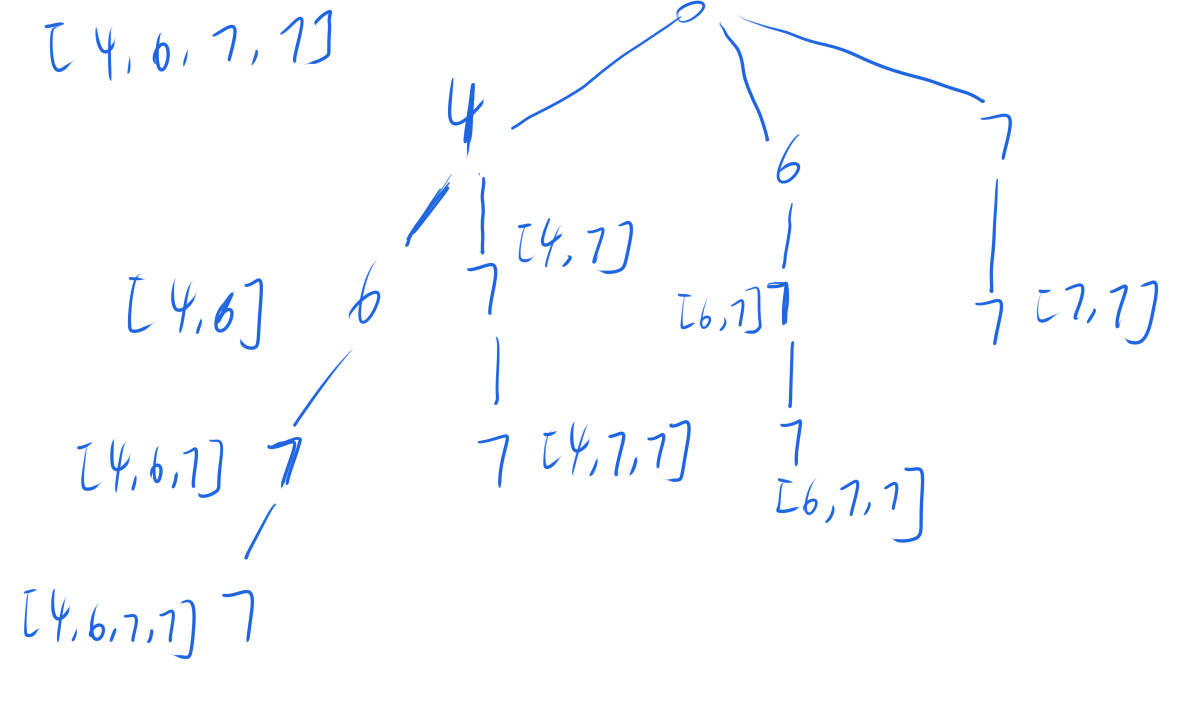 [4,6,7,7]
4
6
7
[4,7]
[4,6]
6
7
[6,7]
7
7
[7,7]
[4,6,7]
7
7
[4,7,7]
7
[6,7,7]
[4,6,7,7]
7